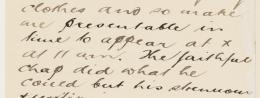 clothes and so make
me presentable in
time to appear at x
at 11 am. The faithful
chap did what he
could but his strenuous